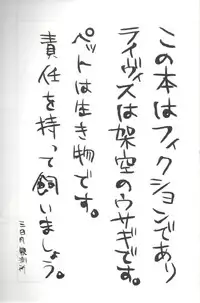 この本はフィクションであり
ライヴィズは架空のウサギです。
ペットは生き物です。
責任を持って飼いましょう。